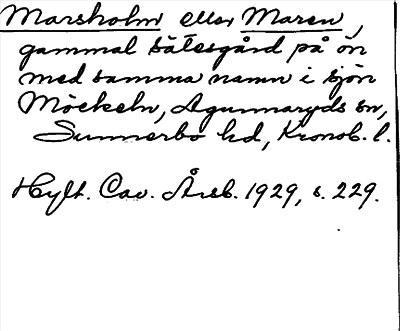 Marsholm eller Maren,
gammal sätesgård på ön
med samma namn i sjön
Möckeln, Agunnaryds sn,
Sunnerbo hd, Kronob. l.
Hylt. Cav. Årsb. 1929, s. 229.